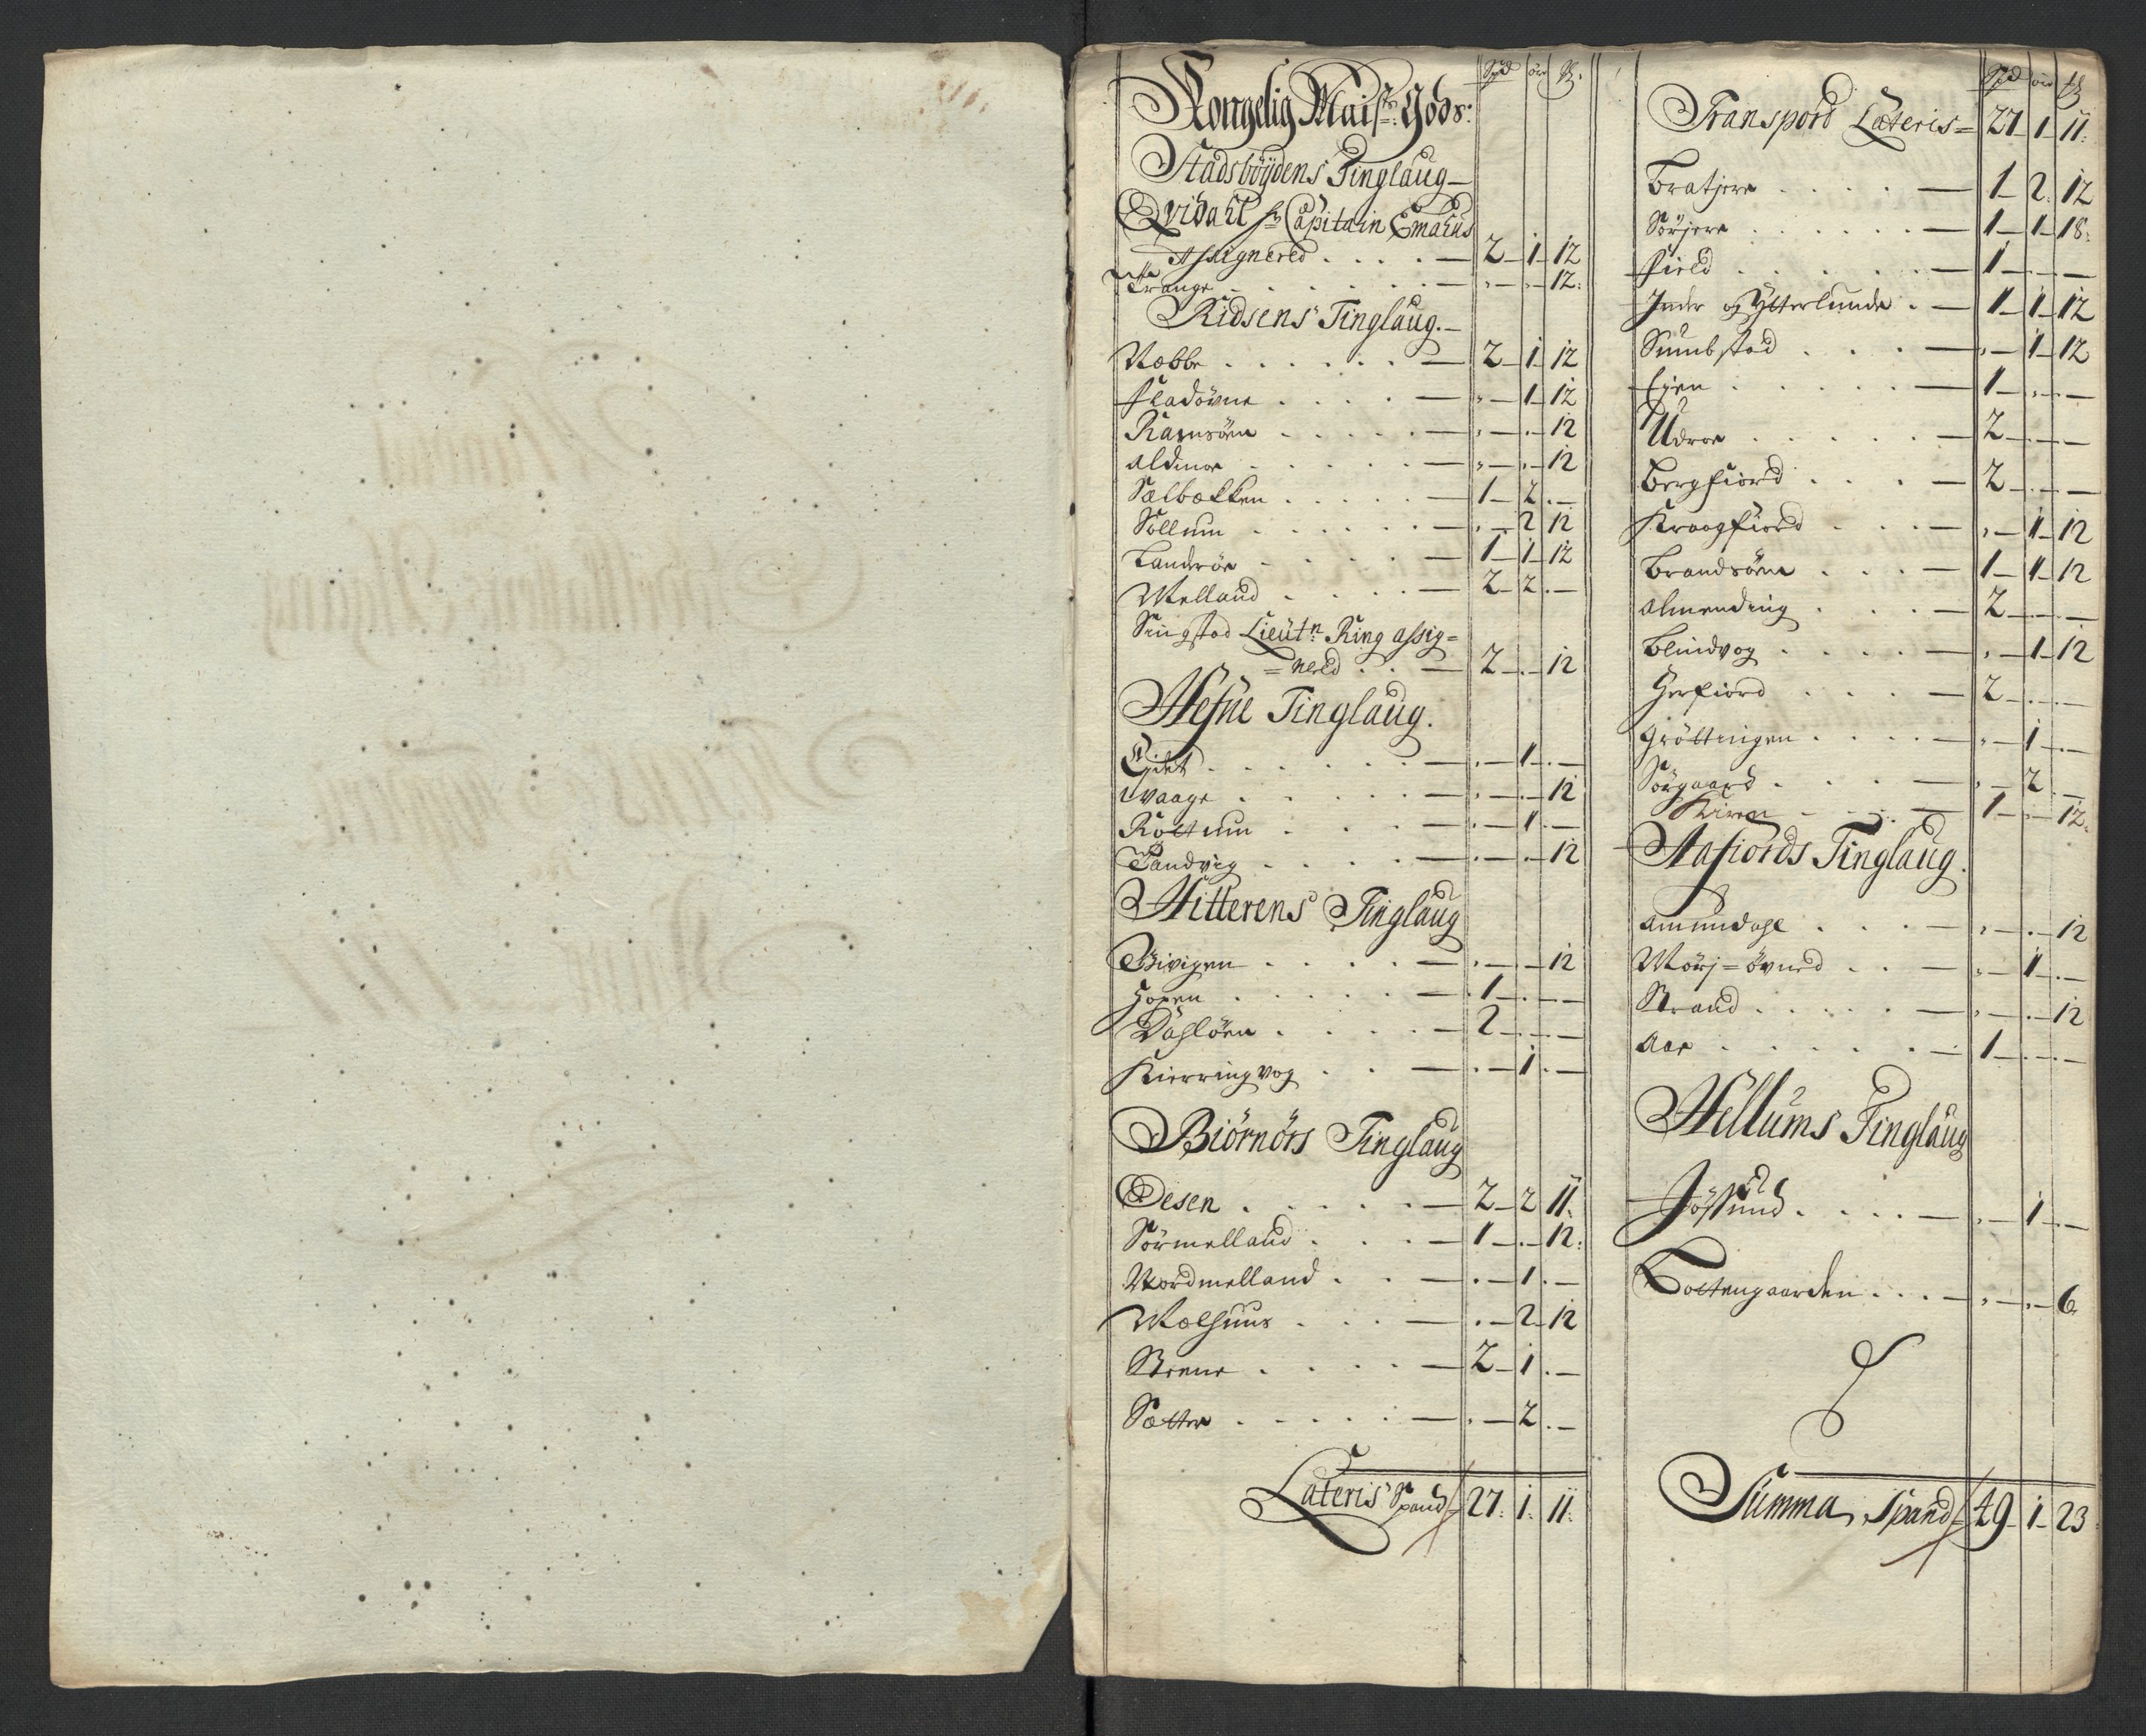 Kongelig Maists: Gods:
Spd ör
Stadsböydens Tinglaug
Qvidahl hr Capitain Emahus
Assignered . . . . 2 1 12
Krange . . . . . . 12:
Ridsens Tinglaug.
Næbbe . . . . . . 2 1 12
fladöÿne . . . . 1 12
Ramsöen . . . . . 12
Aldmoe . . . . . 12
Sælbækken . . . . . 1 2
Sollum . . . . . . 2 12
Landröe . . . . . 1 1 12
Melland . . . . 2 2
Singstad Lieutn: Ring assig=
=nered . . 2 12
Hefne Tinglaug.
Eidet . . . . . . 1
Waage . . . . . 12
Röttum . . . . 1
Sandvig . . . . . 12
Hitterens Tinglaug
Bivigen . . . . . 12
Hopen . . . . . 1
Dahlöen . . . . 2
Kierringvog . . 1
Biörnörs Tinglaug
Oesen . . . . . 2 2 11:
Sörmelland . . . 1 12:
Nordmelland . . 1
Mælhuus . . . 2 12
Steene . . . . 2 1
Sætter . . . . . 2
Lateris Spand 27: 1 11:
Spd ör
Transpord Lateris= 27 1 11:
Bratjere . . . . . 1 2 12
Sörjere . . . . . . 1 1 18:
field . . . . . . 1
Inder og Ytterlunde . 1 1 12
Sumbstad . . . 1 12
Eyen . . . . . 1
Udroe . . . . . 2
Bergfiord . . . . 2
Kraagfiord . . . 1 12
Brandsöen . . . 1 1 12
Almending . . . 2
Blindvog . . . . 1 12
Herfiord . . . . 2
Gröttingen . . . . 1
Sörgaard . . . . 2
Kiren . . . . 1 12:
Aafiords Tinglaug.
Amundahl . . . . 12
Mörj=övned . . 1
Strand . . . . . 12
Aae . . . . . . 1
Hellums Tinglaug
Jössund . . . . 1
Tostengaarden . . . . 6
Summa Spand 49 1 23